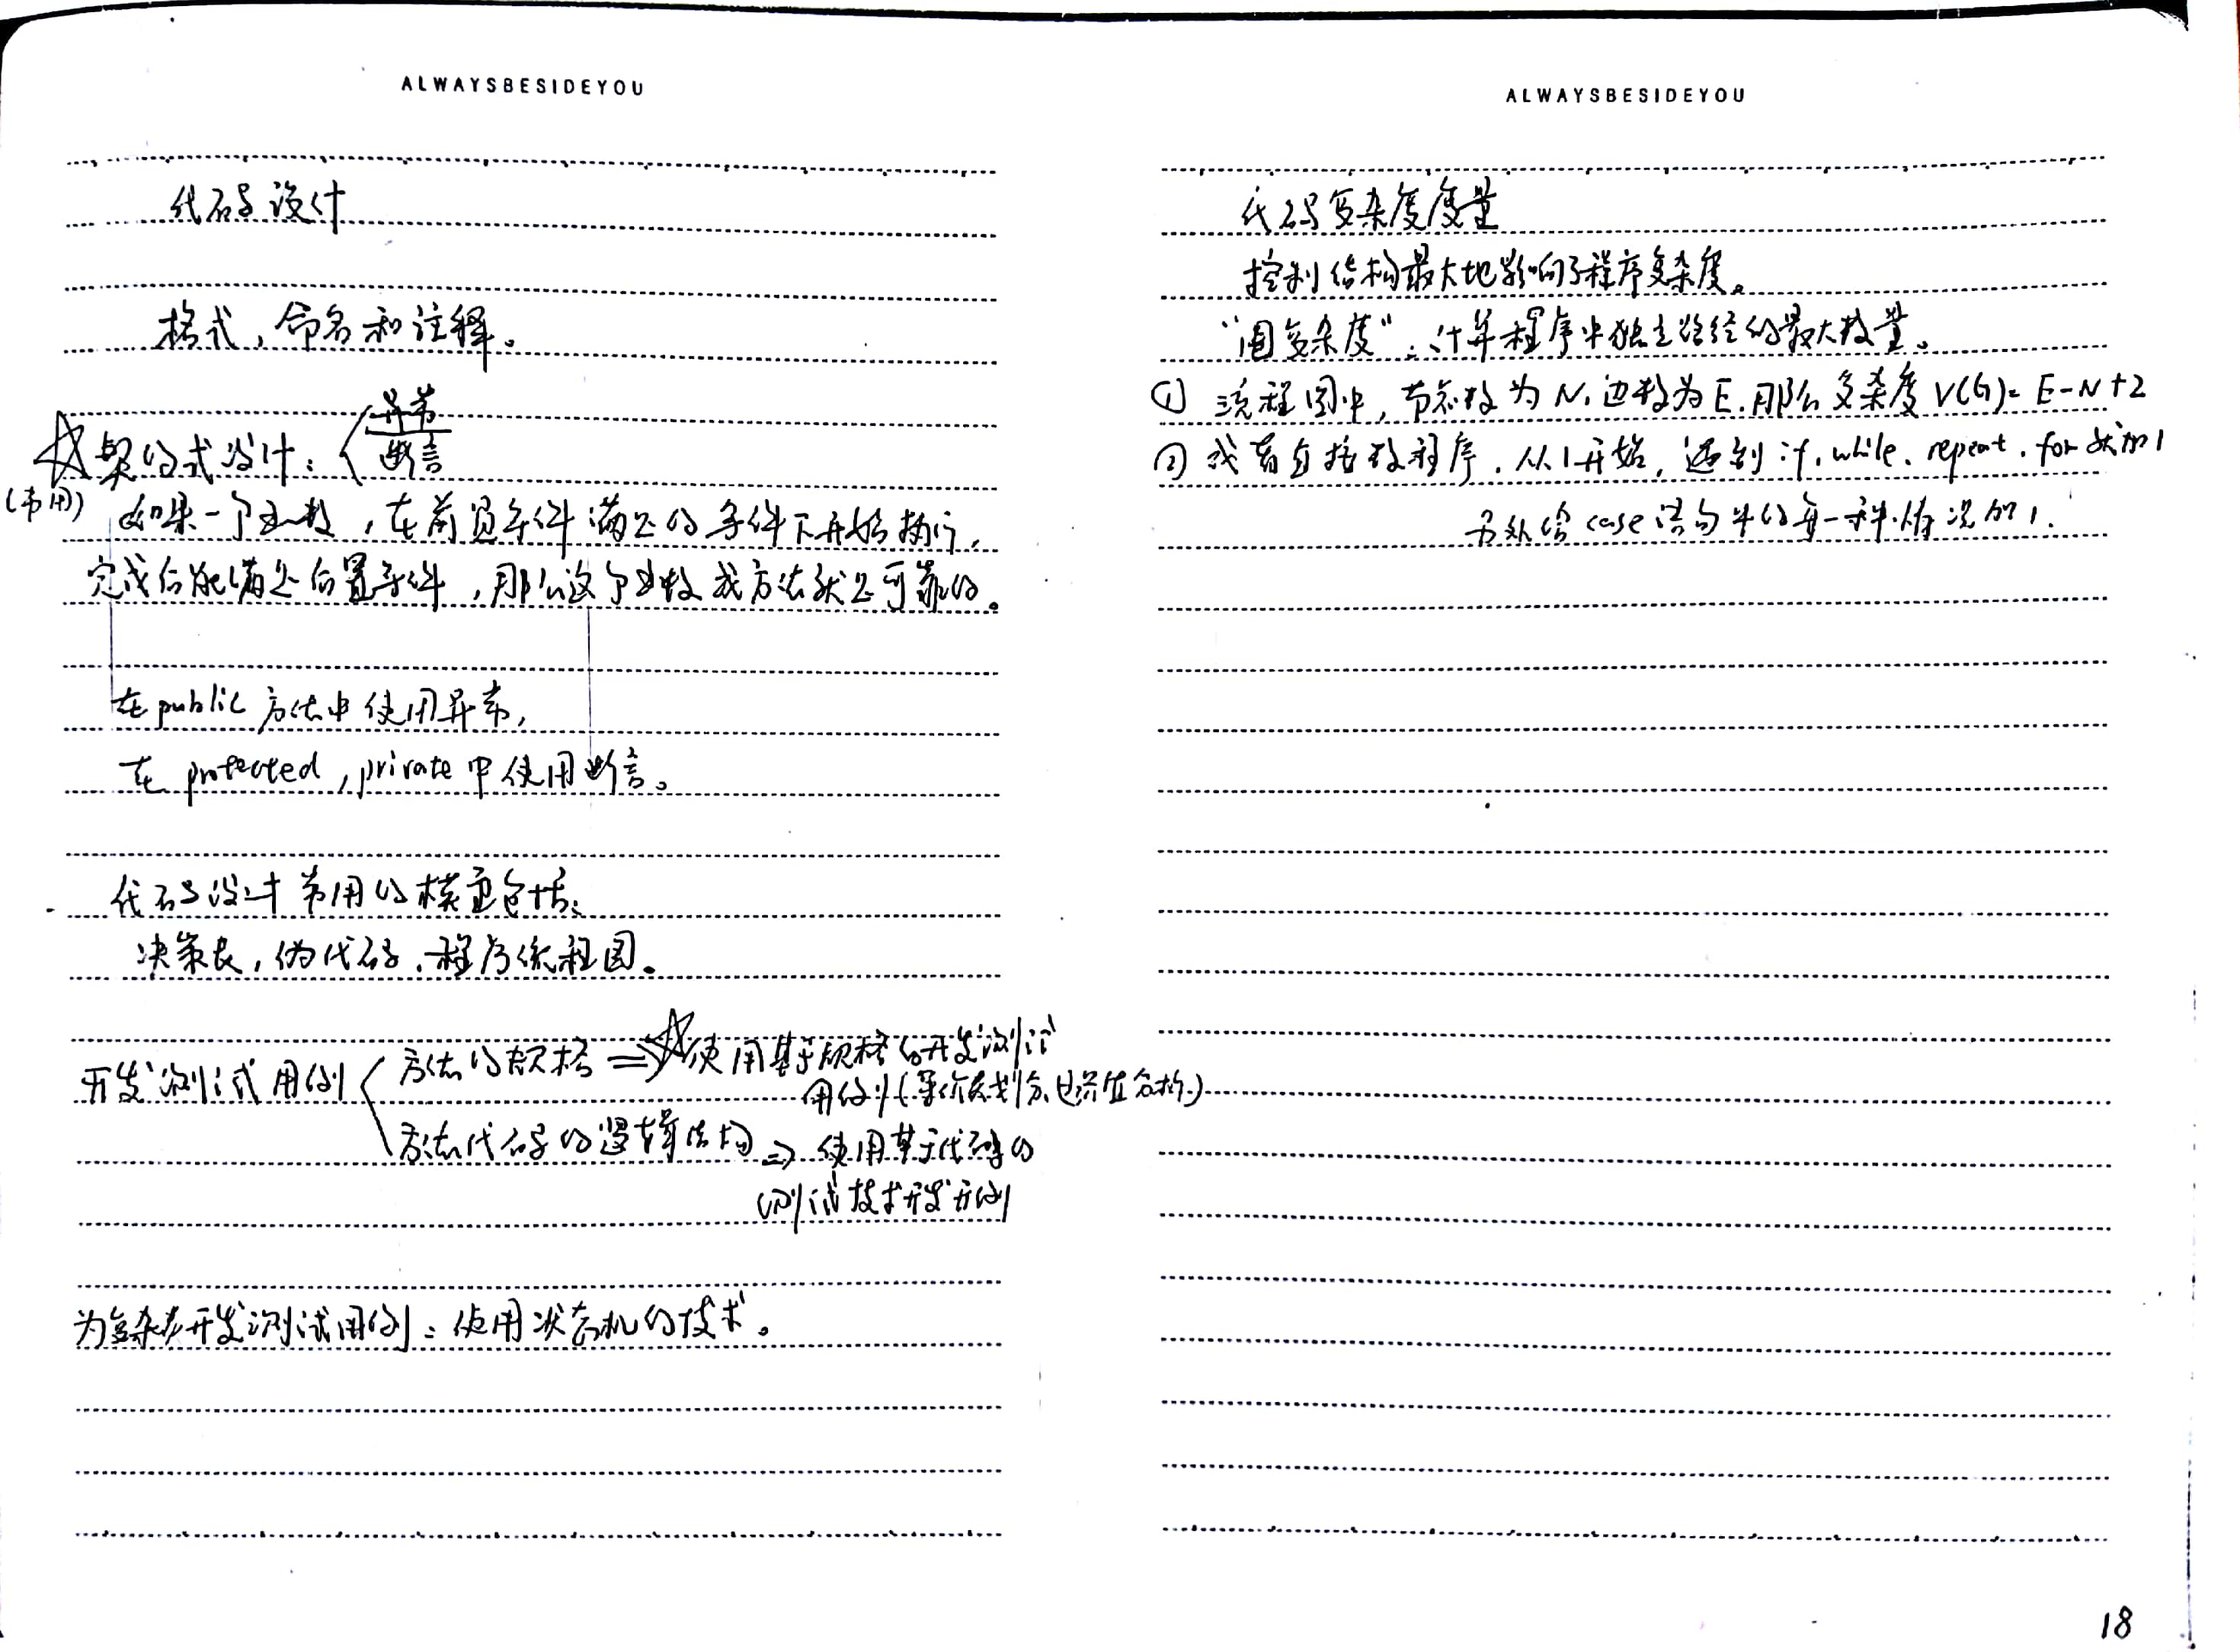 ALWAYSBESIDEYOU
代码设计
格式，命名和注释。
☆契约式设计：
异常
断言
(常用)
如果一个函数，在前置条件满足的条件下开始执行，
完成后能满足后置条件，那么这个函数或方法就是可靠的。
在public方法中使用异常，
在 protected，private中使用断言。
代码设计常用的模型包括：
决策表，伪代码，程序流程图。
开发测试用例
方法的规格 ⇒ ☆使用基于规格的开发测试
用例(等价类划分、边界值分析)
方法代码的逻辑结构 ⇒ 使用基于代码的
测试技术开发用例
为复杂类开发测试用例：使用状态机的技术。
ALWAYSBESIDEYOU
代码复杂度度量
控制结构最大地影响了程序复杂度。
“圈复杂度”：计算程序中独立路径的最大数量。
① 流程图中，节点数为N，边数为E，那么复杂度 V(G)= E-N+2
② 或者直接数程序，从1开始，遇到 if、while、repeat、for 就加1
另外给case语句中的每一种情况加1.
18